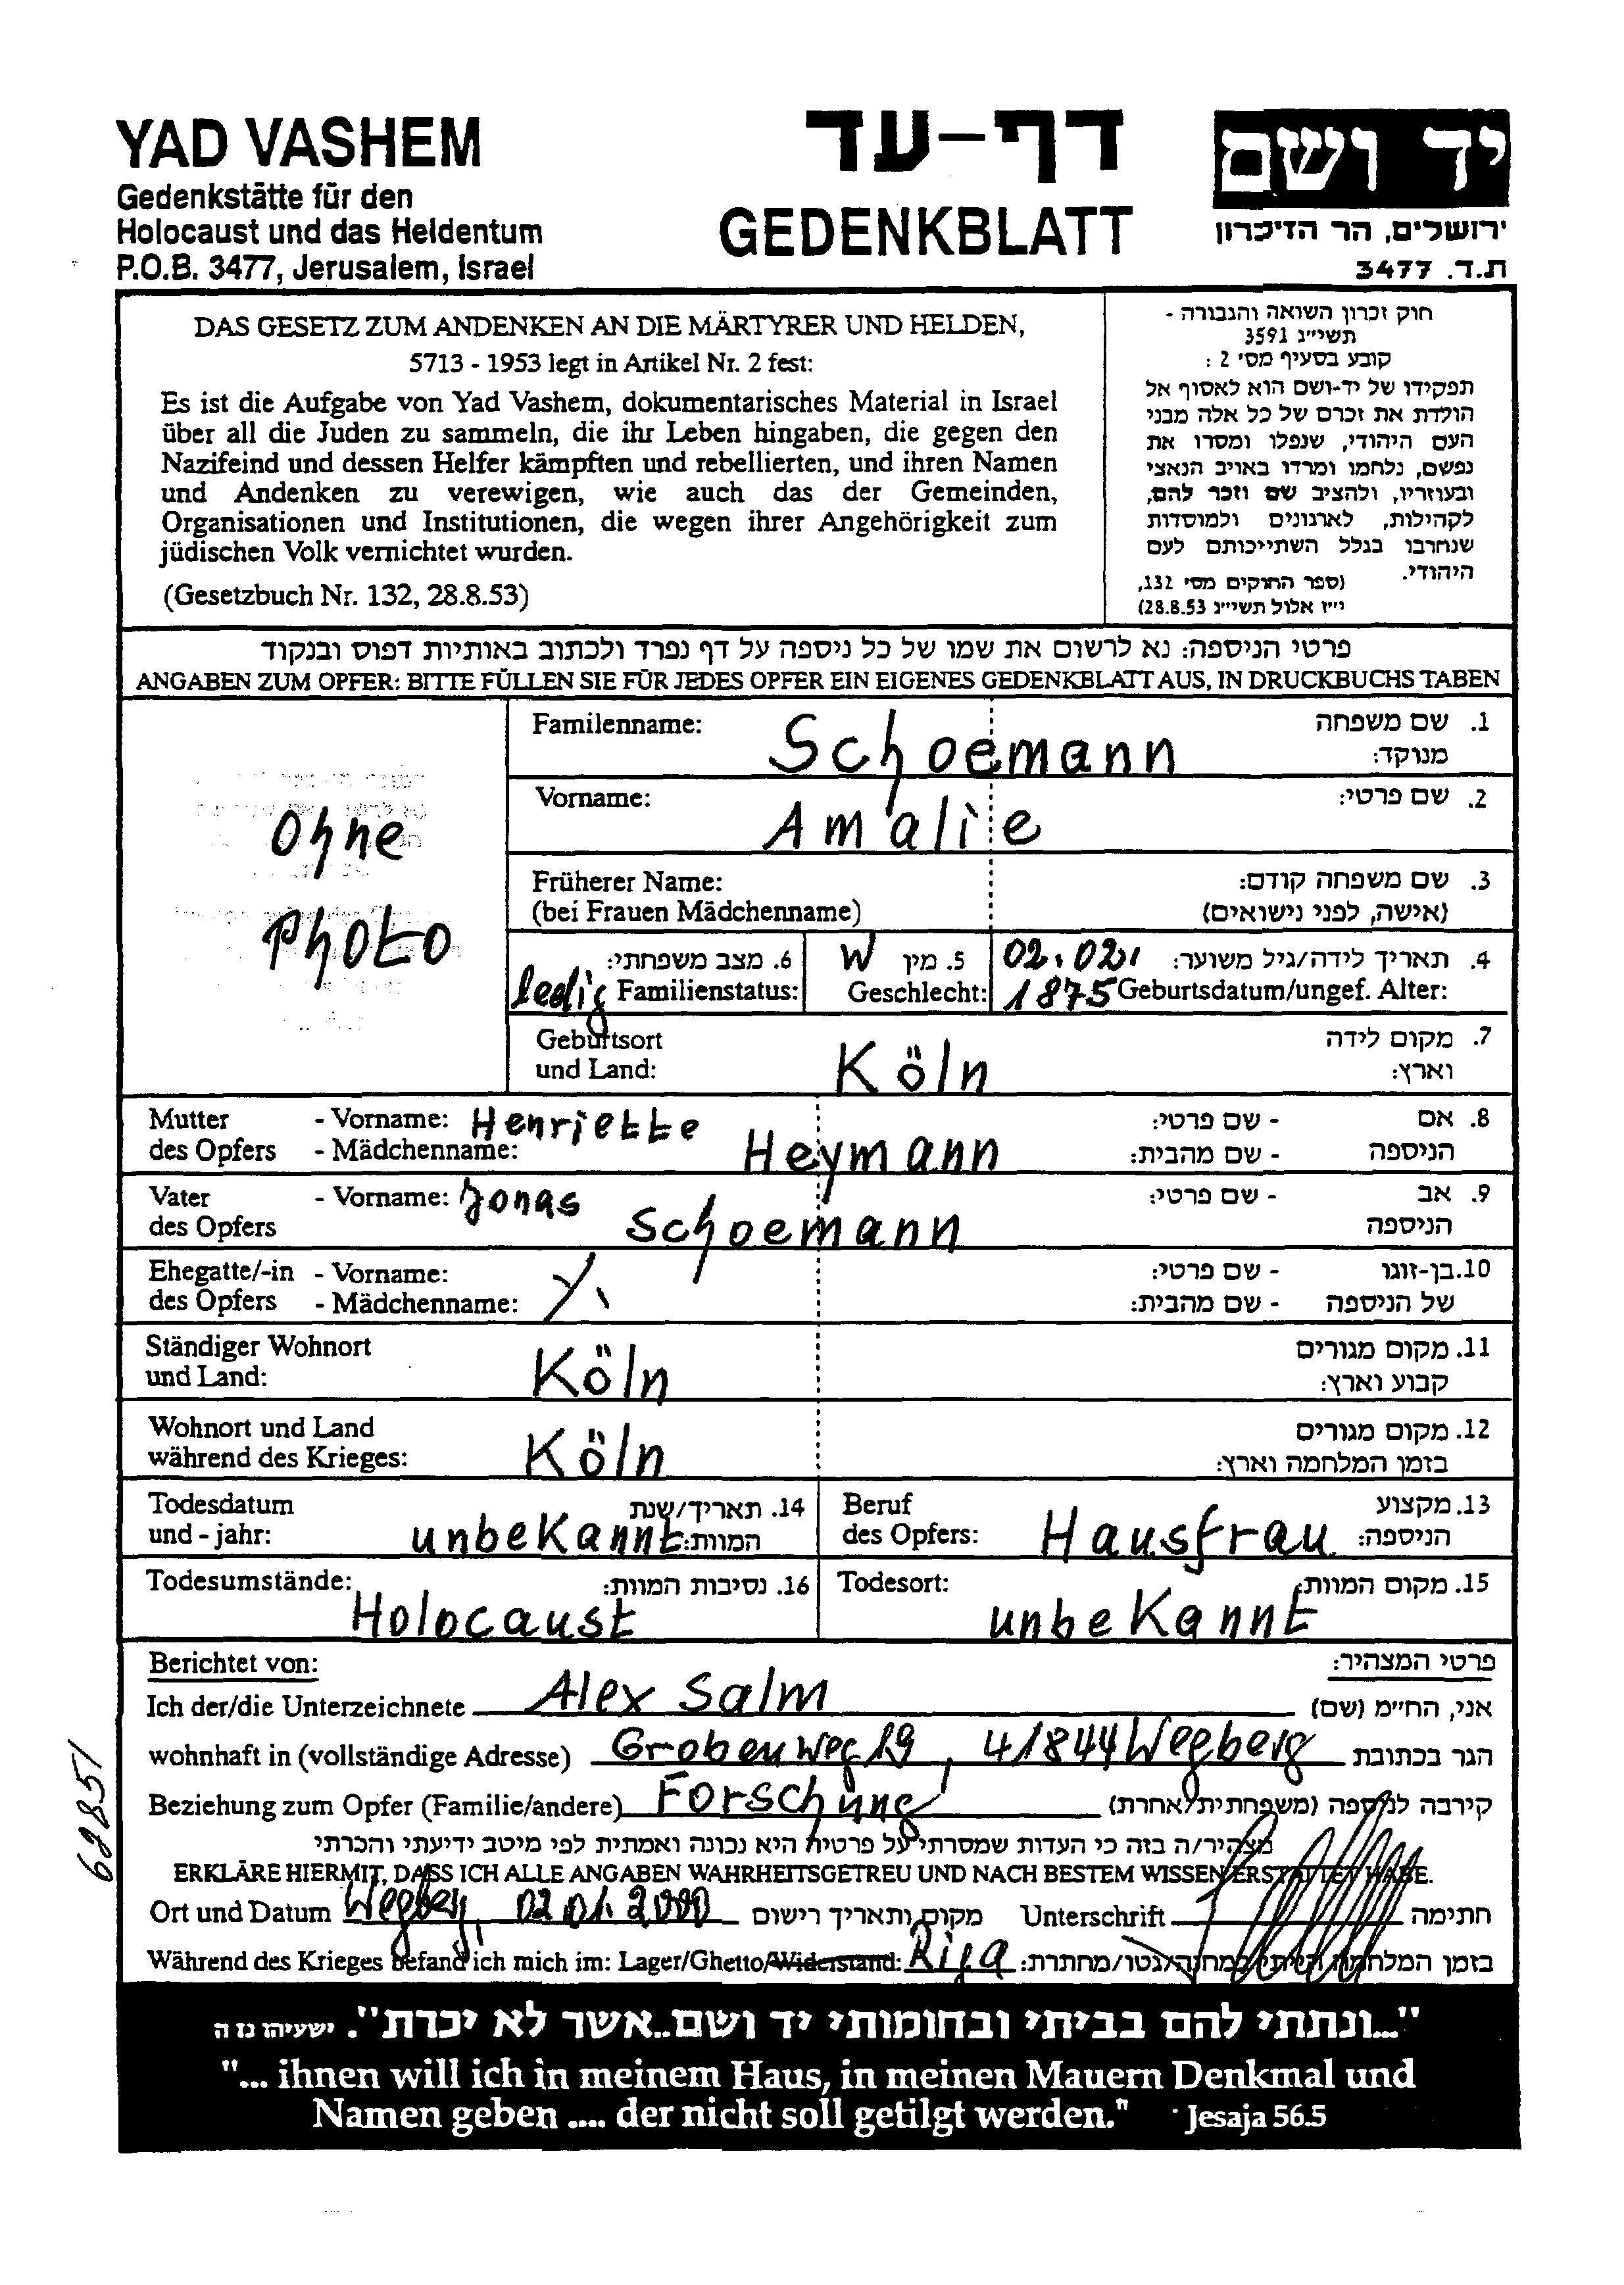 YAD VASHEM
Gedenkstätte für den
Holocaust und das Heldentum
P.O.B. 3477, Jerusalem, Israel
דף-עד
GEDENKBLATT
יד ושם
ירושלים, הר הזיכרון
ת.ד. 3477
DAS GESETZ ZUM ANDENKEN AN DIE MÄRTYRER UND HELDEN,
5713 - 1953 legt in Artikel Nr. 2 fest:
Es ist die Aufgabe von Yad Vashem, dokumentarisches Material in Israel
über all die Juden zu sammeln, die ihr Leben hingaben, die gegen den
Nazifeind und dessen Helfer kämpften und rebellierten, und ihren Namen
und Andenken zu verewigen, wie auch das der Gemeinden,
Organisationen und Institutionen, die wegen ihrer Angehörigkeit zum
jüdischen Volk vernichtet wurden.
(Gesetzbuch Nr. 132, 28.8.53)
חוק זכרון השואה והגבורה -
תשי״ג 3591
קובע בסעיף מס׳ 2 :
תפקידו של יד-ושם הוא לאסוף אל
הולדת את זכרם של כל אלה מבני
העם היהודי, שנפלו ומסרו את
נפשם, נלחמו ומרדו באויב הנאצי
ובעוזריו, ולהציב שם וזכר להם,
לקהילות, לארגונים ולמוסדות
שנחרבו בגלל השתייכותם לעם
היהודי. (ספר החוקים מס׳ 132,
י״ז אלול תשי״ג 28.8.53)
פרטי הניספה: נא לרשום את שמו של כל ניספה על דף נפרד ולכתוב באותיות דפוס ובנקוד
ANGABEN ZUM OPFER: BITTE FÜLLEN SIE FÜR JEDES OPFER EIN EIGENES GEDENKBLATT AUS, IN DRUCKBUCHS TABEN
Ohne
Photo
Familenname: Schoemann 1. שם משפחה
מנוקד:
Vorname: Amalie 2. שם פרטי:
Früherer Name: 3. שם משפחה קודם:
(bei Frauen Mädchenname) (אישה, לפני נישואים)
6. מצב משפחתי: W 5. מין 02.02. 4. תאריך לידה/גיל משוער:
ledig Familienstatus: Geschlecht: 1875 Geburtsdatum/ungef. Alter:
Geburtsort 7. מקום לידה
und Land: Köln וארץ:
Mutter - Vorname: Henriette - שם פרטי: 8. אם
des Opfers - Mädchenname: Heymann - שם מהבית: הניספה
Vater - Vorname: Jonas - שם פרטי: 9. אב
des Opfers Schoemann הניספה
Ehegatte/-in - Vorname: - שם פרטי: 10. בן-זוגו
des Opfers - Mädchenname: - שם מהבית: של הניספה
Ständiger Wohnort 11. מקום מגורים
und Land: Köln קבוע וארץ:
Wohnort und Land 12. מקום מגורים
während des Krieges: Köln בזמן המלחמה וארץ:
Todesdatum 14. תאריך/שנת
und - jahr: unbekannt המוות:
Beruf 13. מקצוע
des Opfers: Hausfrau הניספה:
Todesumstände: Holocaust 16. נסיבות המוות:
Todesort: unbekannt 15. מקום המוות:
Berichtet von: פרטי המצהיר:
Ich der/die Unterzeichnete Alex Salm אני, הח״מ (שם)
wohnhaft in (vollständige Adresse) Grobenweg 19, 41844 Wegberg הגר בכתובת
Beziehung zum Opfer (Familie/andere) Forschung קירבה לניספה (משפחתית/אחרת)
מצהיר/ה בזה כי העדות שמסרתי על פרטיה היא נכונה ואמתית לפי מיטב ידיעתי והכרתי
ERKLÄRE HIERMIT, DASS ICH ALLE ANGABEN WAHRHEITSGETREU UND NACH BESTEM WISSEN ERSTATTET HABE.
Ort und Datum Wegberg, 02.01.2000 מקום ותאריך רישום Unterschrift חתימה
Während des Krieges befand ich mich im: Lager/Ghetto/Widerstand: Riga בזמן המלחמה הייתי במחנה/גטו/מחתרת:
68851
"...ונתתי להם בביתי ובחומותי יד ושם..אשר לא יכרת". ישעיהו נו ה
"... ihnen will ich in meinem Haus, in meinen Mauern Denkmal und
Namen geben .... der nicht soll getilgt werden." Jesaja 56.5